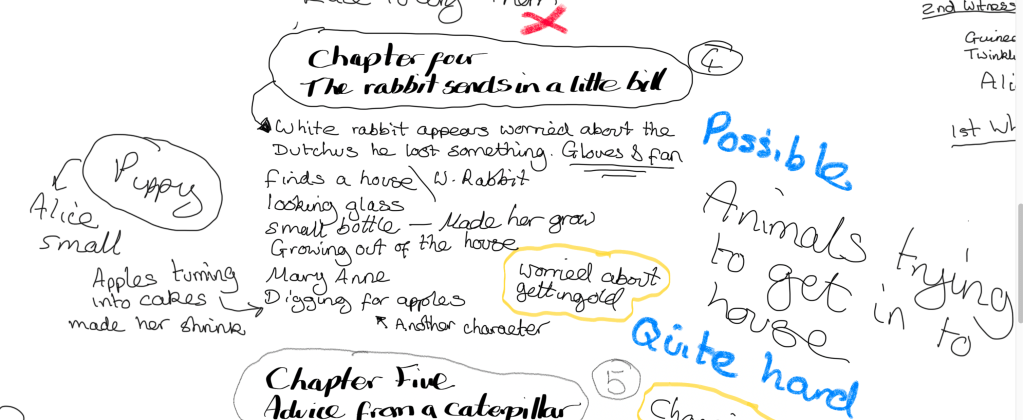 2nd Witness
Twinkl
Ali
1st Wh
Chapter four
The rabbit sends in a little bill
4
White rabbit appears worried about the
Dutchus he lost something. Gloves & fan
finds a house W. Rabbit
looking glass
small bottle — Made her grow
Growing out of the house
Mary Anne
Digging for apples
Another character
Puppy
Alice
small
Apples turning
into cakes
made her shrink
worried about
getting old
Possible
Animals trying
to get in to
house
Quite hard
Chapter Five
Advice from a caterpillar
5